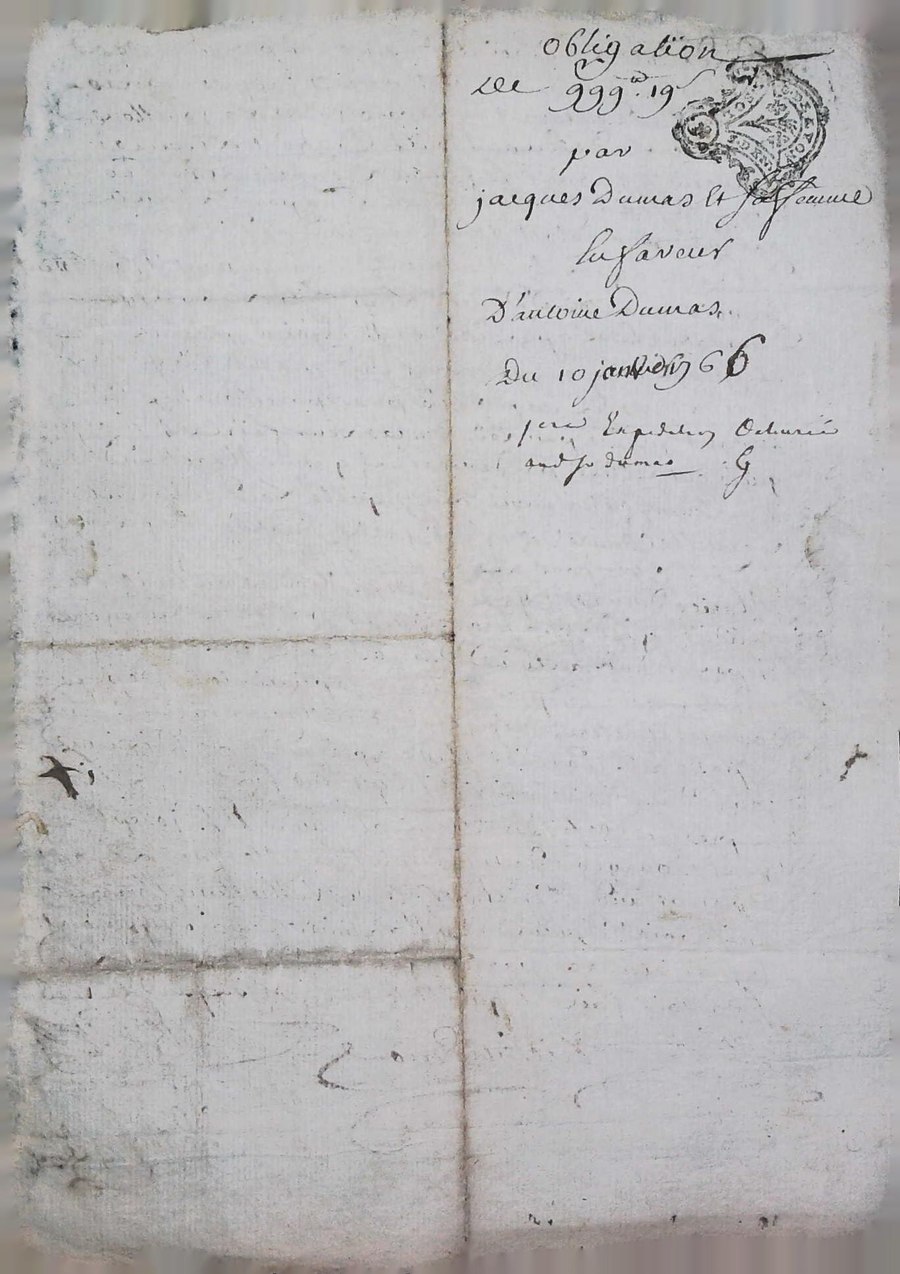 obligation
De 999ᵗᵗ 19ˢ
par
jacques Dumas Et sa femme
En faveur
D'antoine Dumas.
Du 10 janvier 1766
1ere Expedition Delivrée
aud. Sr dumas